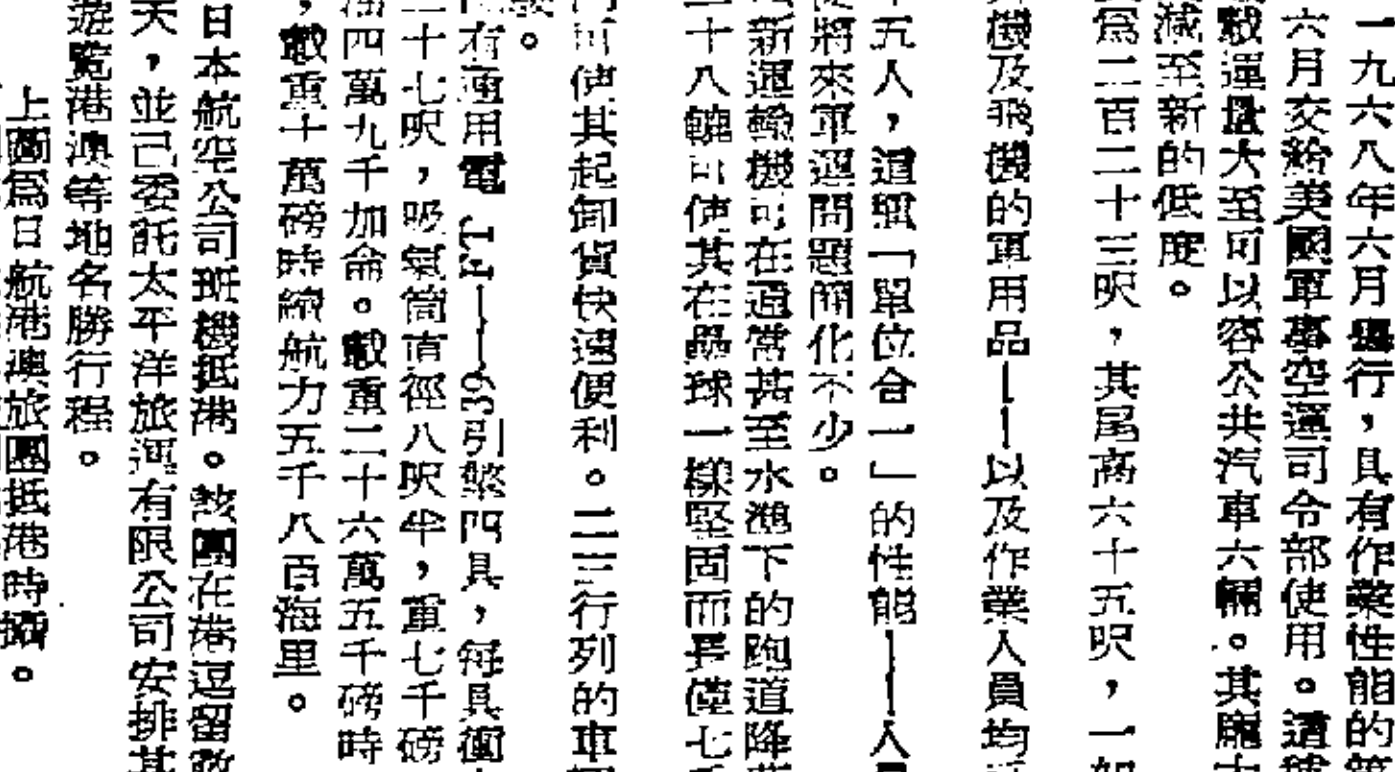 一九六八年六月舉行，具有作業性能的第
六月交給美國軍事空運司令部使用。這種
載運量大至可以容公共汽車六輛。其龐大
減至新的低度。
為二百二十三呎，其尾高六十五呎，一如
機及飛機的軍用品——以及作業人員均
五人，這種「單位合一」的性能——人
使將來軍運問題簡化不少。
新運輸機可在通常甚至水池下的跑道降落
二十八輪可使其在品球一樣堅固而長僅七千
可使其起卸貨快速便利。二三行列的車
有通用電 FT——39引擎四具，每具衝
二十七呎，吸氣筒直徑八呎半，重七千磅
四萬九千加侖。載重二十六萬五千磅時
，載重十萬磅時續航力五千八百海里。
日本航空公司班機抵港。該團在港逗留數
天，並已委託太平洋旅運有限公司安排其
遊覽港澳等地名勝行程。
上圖為日航港澳旅團抵港時攝。